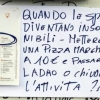 QUANDO LE SP
DIVENTANO INSO
NIBILI - METTERE
UNA PIZZA MARGH
A 10€ E PASSARE
LADRO O CHIUD
L'ATTIVITA'??